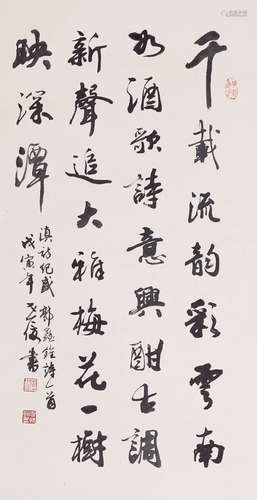 千載流韵彩雲南
如酒歌詩意興酣古調
新聲追大雅梅花一樹
映深潭
滇詩紀 鄭 詩一首
戊寅年 書